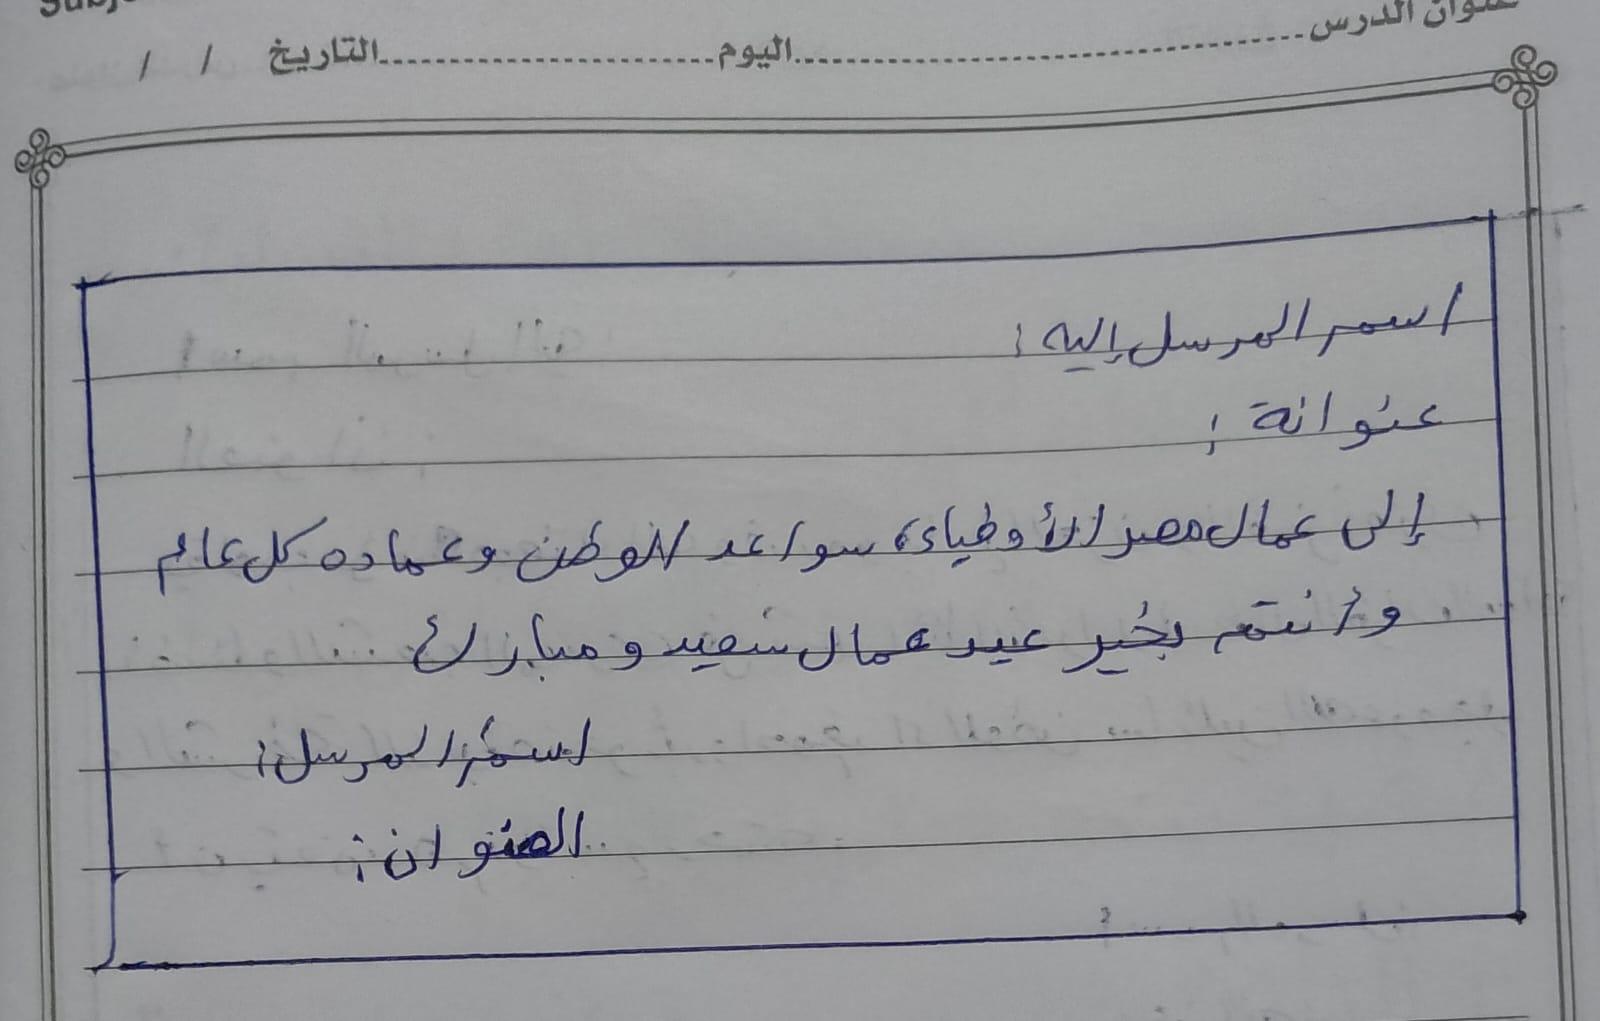 عنوان الدرس
اليوم
التاريخ / /
اسم المرسل إليه :
عنوانة :
إلى عمال مصر الأوفياء، سواعد الوطن وعماده كل عام
وأنتم بخير عيد عمال سعيد ومبارك
اسم المرسل :
العنوان :